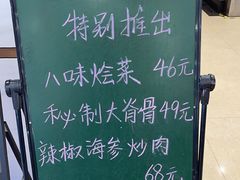 特别推出
八味烩菜 46元
秘制大脊骨49元
辣椒海参炒肉
68元